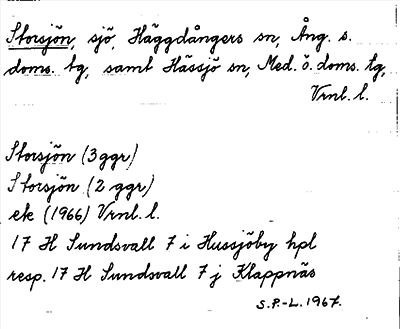 Storsjön, sjö, Häggdångers sn, Ång. s.
doms. tg, samt Hässjö sn, Med. ö. doms. tg,
Vrnl. l.
Storsjön (3 ggr)
Storsjön (2 ggr)
ek (1966) Vrnl. l.
17 H Sundsvall 7 i Hussjöby hpl
resp. 17 H Sundsvall 7 j Klappnäs
S.P.-L. 1967.